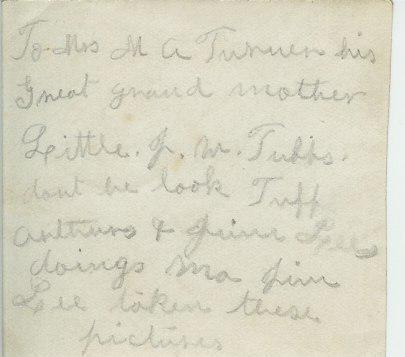 To Mrs M A Turner his
Great grand mother
Little. J. W. Tubbs.
dont he look Tuff
Arthurs & Jim Lees
doings ma Jim
Lee taken these
pictures